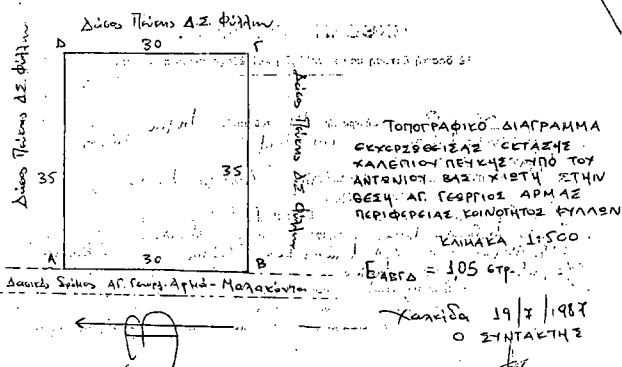 Δάσος Πεύκης Δ.Σ. Φύλλων
Δ 30 Γ
Δάσος Πεύκης Δ.Σ. Φύλλων
35
35
Δάσος Πεύκης Δ.Σ. Φύλλων
Α 30 Β
Δασικός δρόμος Αγ. Γεωργ. Αρμά - Μαλακώντα
ΤΟΠΟΓΡΑΦΙΚΟ ΔΙΑΓΡΑΜΜΑ
ΕΚΧΕΡΣΩΘΕΙΣΑΣ ΕΚΤΑΣΗΣ
ΧΑΛΕΠΙΟΥ ΠΕΥΚΗΣ ΥΠΟ ΤΟΥ
ΑΝΤΩΝΙΟΥ ΒΑΣ. ΧΙΩΤΗ ΣΤΗΝ
ΘΕΣΗ ΑΓ. ΓΕΩΡΓΙΟΣ ΑΡΜΑΣ
ΠΕΡΙΦΕΡΕΙΑΣ ΚΟΙΝΟΤΗΤΟΣ ΦΥΛΛΩΝ
ΚΛΙΜΑΚΑ 1:500
Ε ΑΒΓΔ = 1,05 στρ.
Χαλκίδα 19/7/1987
Ο ΣΥΝΤΑΚΤΗΣ